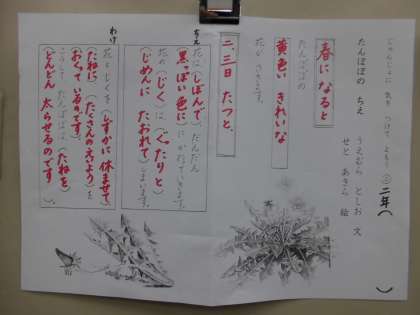 じゅんじょに 気を つけて よもう ② 二年（　　　）
たんぽぽの ちえ
うえむら としお 文
せと あきら 絵
春に なると
たんぽぽの
黄色い きれいな
花が さきます。
二、三日 たつと、
ちえ
花は（しぼんで）、だんだん
（黒っぽい色に）に かわっていきます。
花の（じく）は（ぐったりと
（じめんに たおれて）しまいます。
わけ
花と じくを（しずかに 休ませて）
たねに（たくさんのえいよう）を
（おくって いるのです）。
こうして、たんぽぽは、（たねを）
（どんどん 太らせるのです）。